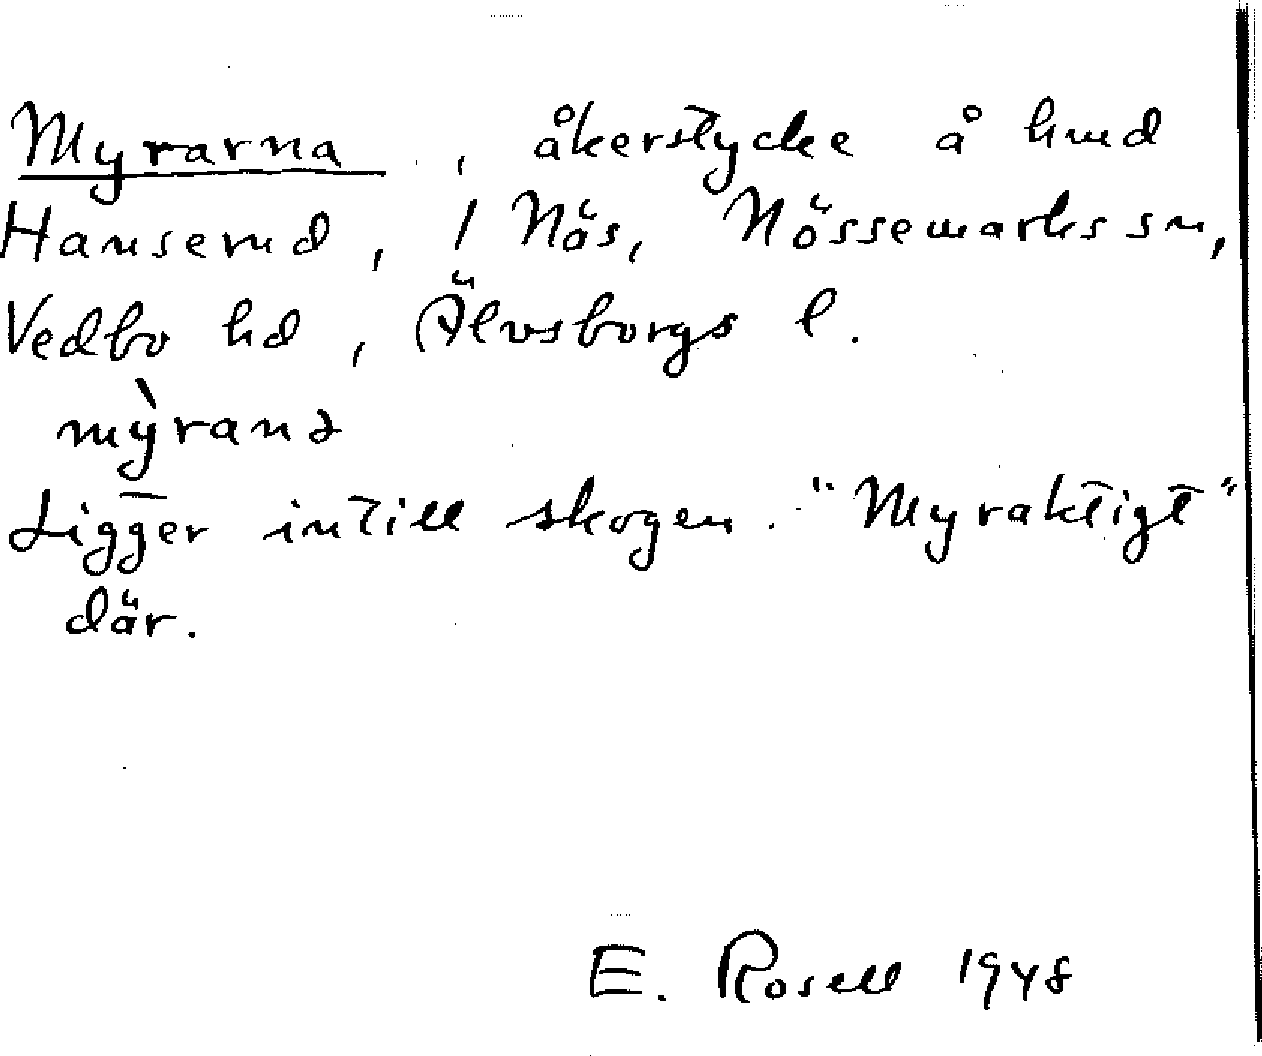 Myrarna, åkerstycke å hmd
Hanserud, 1 Näs, Nössemarks sn,
Vedbo hd, Älvsborgs l.
mỳranə
Ligger intill skogen. "Myraktigt"
där.
E. Rosell 1948